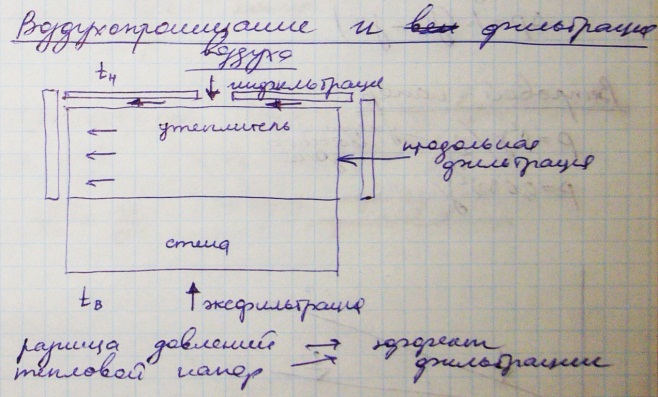 Воздухопроницание и фильтрация
воздуха
tн
инфильтрация
утеплитель
продольная
фильтрация
стена
tв
эксфильтрация
разница давлений → эффект
тепловой напор → фильтрации